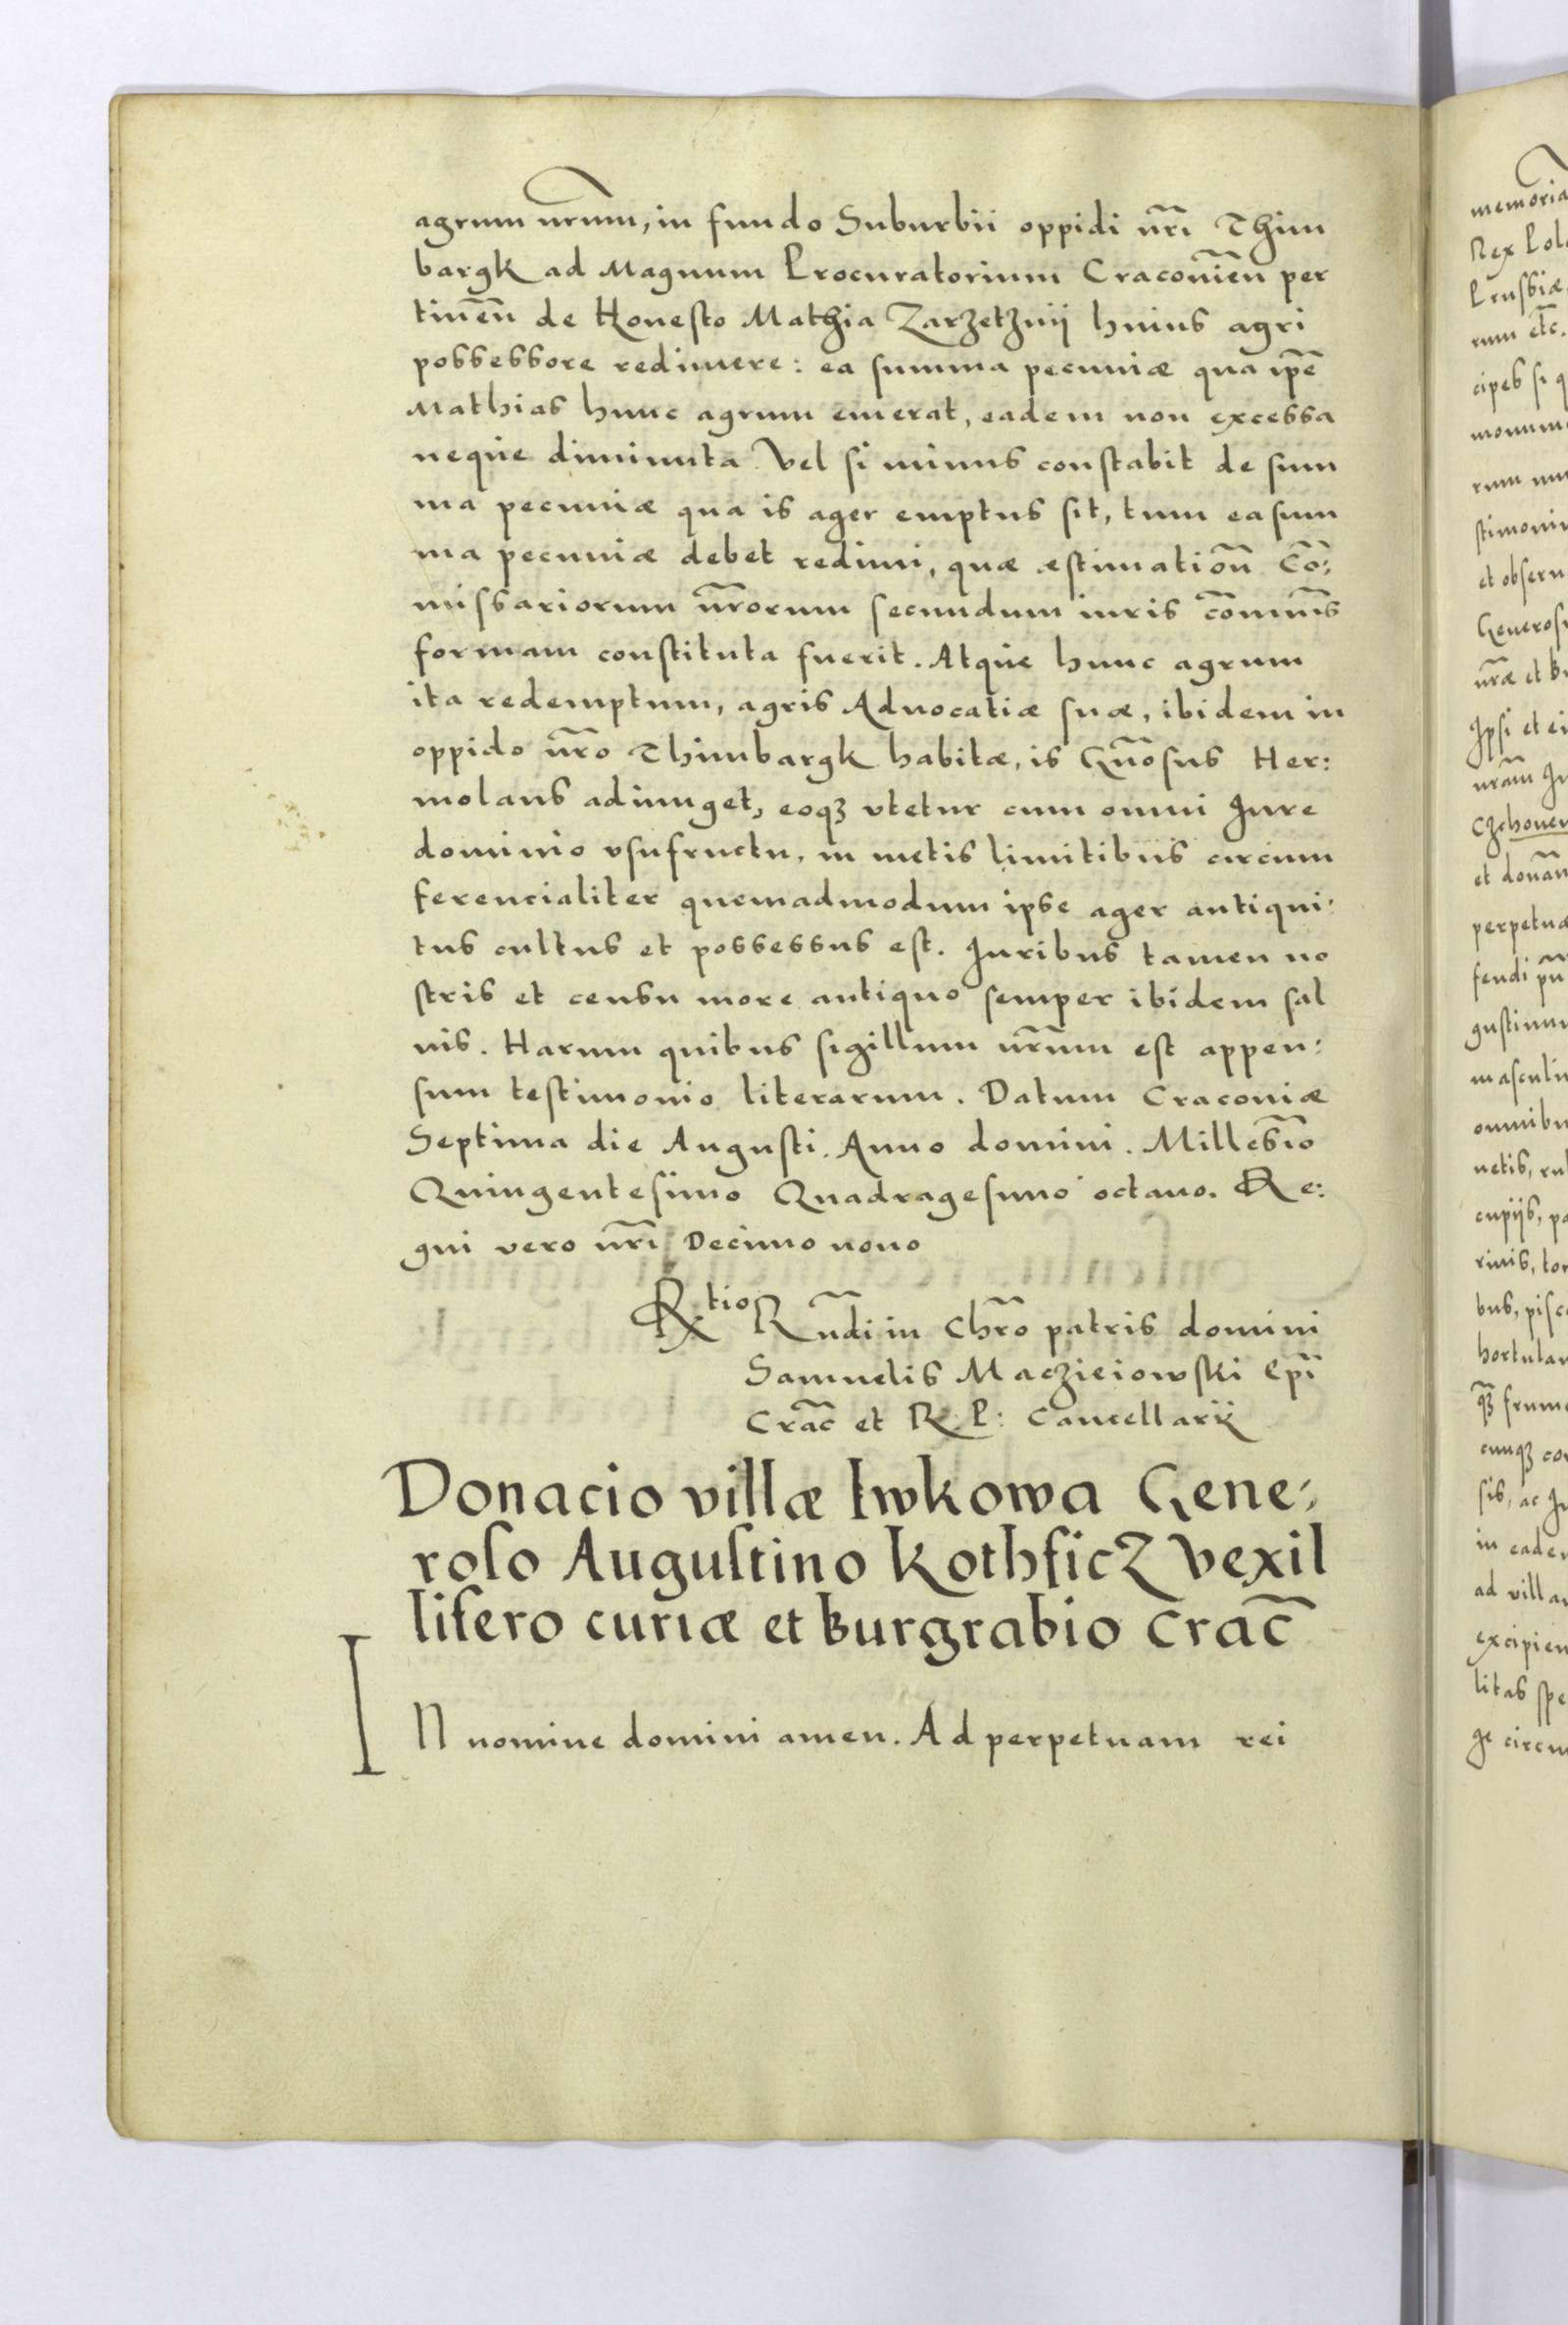 agrum nr̃um, in fundo Suburbii oppidi nr̃i Thim
bargk ad Magnum Procuratorium Cracovieñ per
tineñ de Honesto Mathia Zarzetznij huius agri
possessore redimere: ea summa pecuniæ qua ip̃e
Mathias hunc agrum emerat, eadem non excessa
neque diminuta. Vel si minus constabit de sum
ma pecuniæ qua is ager emptus sit, tum ea sum
ma pecuniæ debet redimi, quæ æstimatioñ Cõ:
missariorum nr̃orum secundum iuris cõmuñis
formam constituta fuerit. Atque hunc agrum
ita redemptum, agris Advocatiæ suæ, ibidem in
oppido nr̃o Thimbargk habitæ, is Gñosus Her:
molaus adiunget, eoqꝫ vtetur cum omni Jure
dominio vsufructu, in metis limitibus circum
ferencialiter quemadmodum ipse ager antiqui:
tus cultus et possessus est. Juribus tamen no
stris et censu more antiquo semper ibidem sal
uis. Harum quibus sigillum nr̃um est appen:
sum testimonio literarum. Datum Cracoviæ
Septima die Augusti. Anno domini. Milles̃io
Quingentesimo Quadragesimo octauo. Re:
gni vero nr̃i Decimo nono
Rtio Rñdi in Chr̃o patris domini
Samuelis Maczieiowski Ep̃i
Crac̃ et R. P: Cancellarij
Donacio villæ Iwkowa Gene:
roso Augustino Kothficz Vexil
lifero curiæ et Burgrabio Crac̃
IN nomine domini amen. Ad perpetuam rei
memoria
Rex Pol
Prussiæ
rum etc̃.
cipes si q
monum
rum
stimoni
et obseru
Generos
nr̃æ et
Ipsi et ei
nr̃am
Czchoue
et donañ
perpetu
fendi
gustinu
masculi
omnibu
netis,
cupijs, p
riuis, to
bus, pisc
hortula
qꝫ frum
cunqꝫ co
sis, ac
in eade
ad villa
excipien
litas spe
ge circu